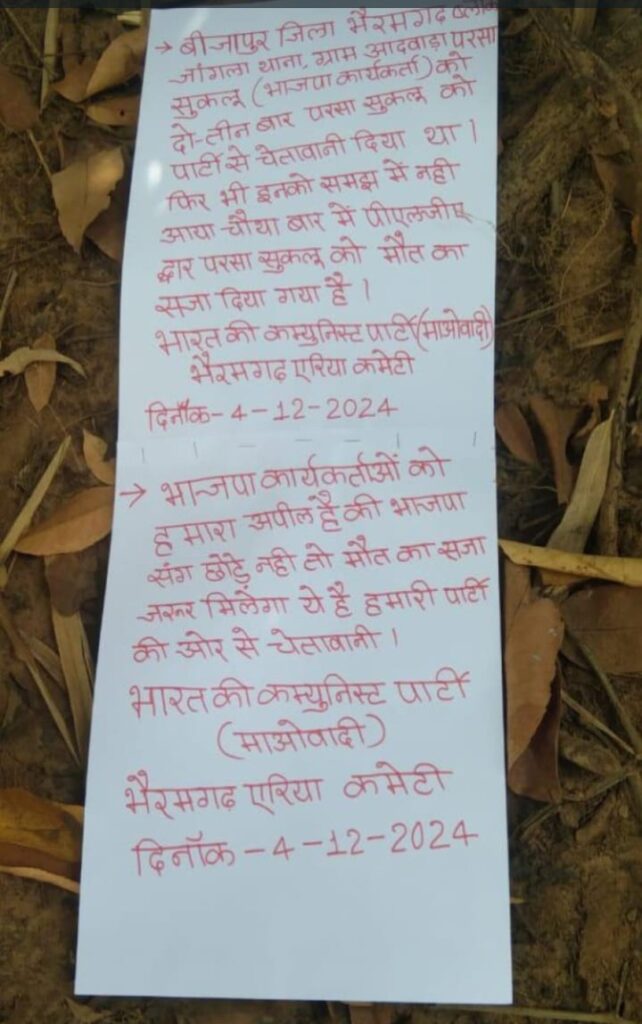 → बीजापुर जिला भैरमगढ़ ब्लॉक
जांगला थाना, ग्राम आदवाड़ा परसा
सुकलू (भाजपा कार्यकर्ता) को
दो-तीन बार परसा सुकलू को
पार्टी से चेतावानी दिया था।
फिर भी इनको समझ में नही
आया चौथा बार में पीएलजीए
द्वार परसा सुकलू को मौत का
सजा दिया गया है।
भारत की कम्युनिस्ट पार्टी (माओवादी)
भैरमगढ़ एरिया कमेटी
दिनॉक-4-12-2024
→ भाजपा कार्यकर्ताओं को
हमारा अपील है की भाजपा
संग छोड़े नही तो मौत का सजा
जरूर मिलेगा ये है हमारी पार्टी
की ओर से चेतावानी।
भारत की कम्युनिस्ट पार्टी
(माओवादी)
भैरमगढ़ एरिया कमेटी
दिनॉक-4-12-2024